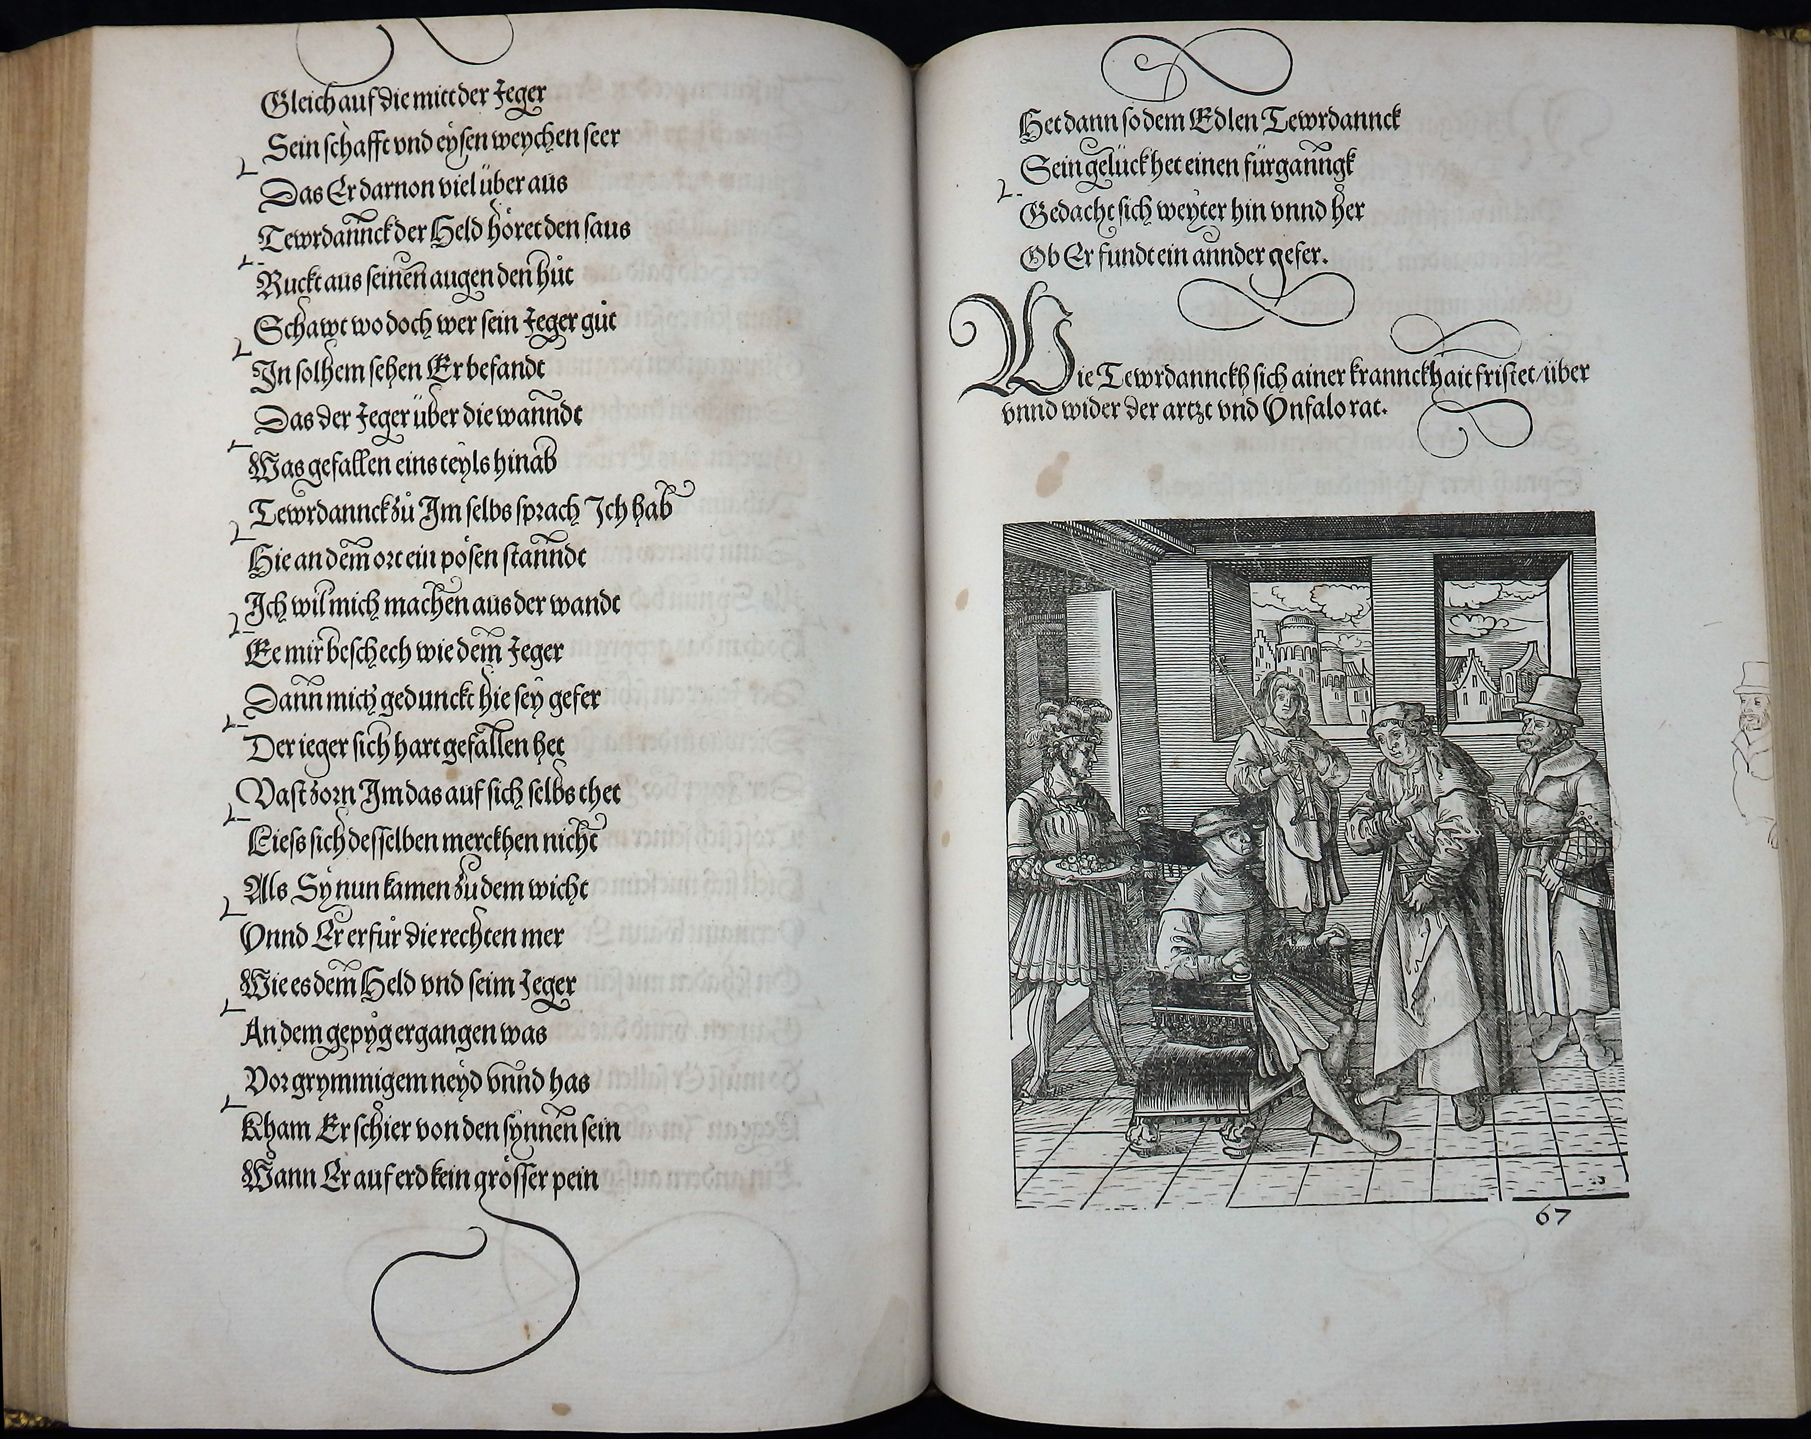 Gleich auf die mitt der Jeger
Sein schafft vnd eysen weychen seer
Das Er darnon viel über aus
Tewrdannck der Held höret den saus
Ruckt aus seinen augen den hůt
Schawt wo doch wer sein Jeger gůt
In solhem sehen Er befandt
Das der Jeger über die wanndt
Was gefallen eins teyls hinab
Tewrdannck zů Im selbs sprach Ich hab
Hie an dem ort ein pösen stanndt
Ich wil mich machen aus der wandt
Ee mir beschech wie dem Jeger
Dann mich gedunckt hie sey gefer
Der ieger sich hart gefallen het
Vast zorn Im das auf sich selbs thet
Liess sich desselben merckhen nicht
Als Sy nun kamen zů dem wicht
Vnnd Er erfůr die rechten mer
Wie es dem Held vnd seim Jeger
An dem gepyg ergangen was
Vor grymmigem neyd vnnd has
Kham Er schier von den synnen sein
Wann Er auf erd kein grösser pein
Het dann so dem Edlen Tewrdannck
Sein gelück het einen fürganngk
Gedacht sich weyter hin vnnd her
Ob Er fundt ein annder gefer.
Wie Tewrdannckh sich ainer kranncKhait fristet/über
vnnd wider der artzt vnd Vnfalo rat.
67